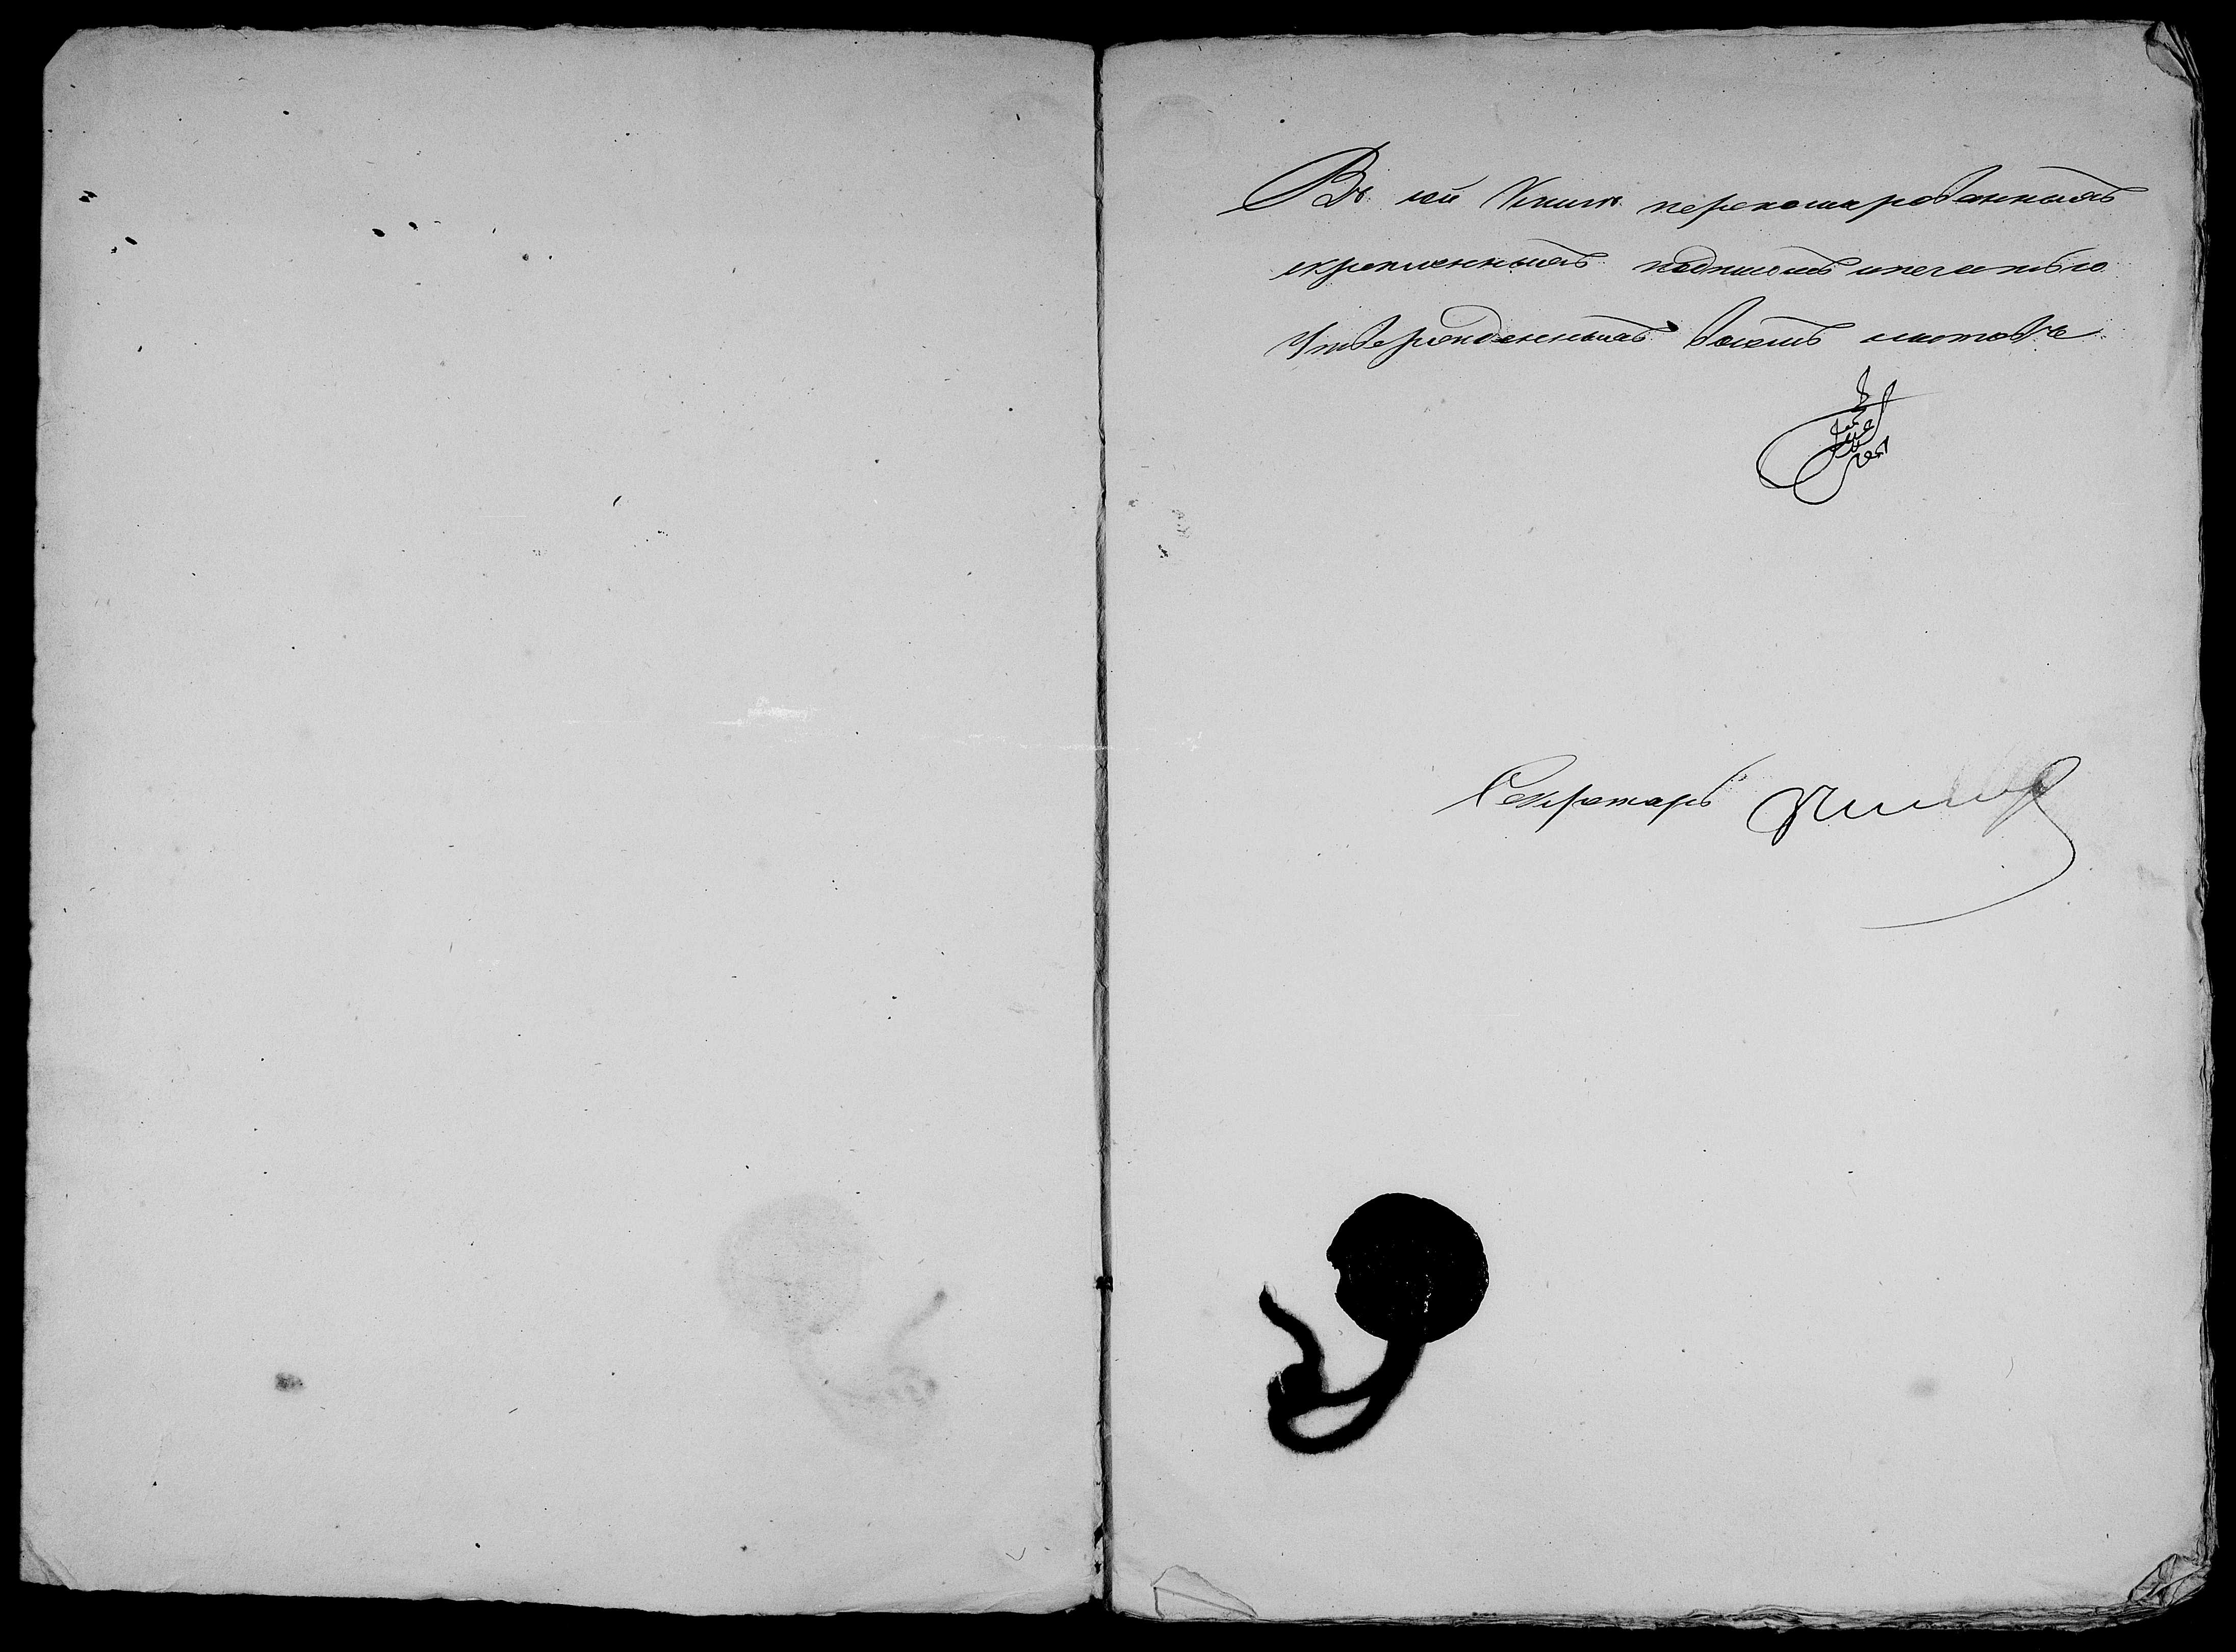 Въ сей Книгѣ переношированныхъ
скрѣпленныхъ подписомъ и печатью
Утвержденныхъ восемь листовъ
Секретарь